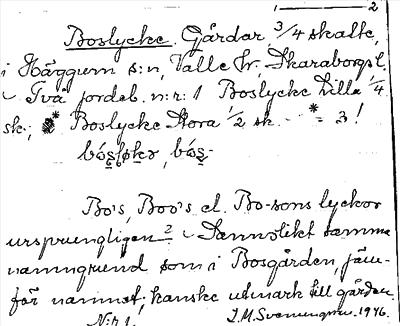 1 — 2
Boslycke. Gårdar 3/4 skatte,
i Häggum s:n, Valle hr, Skaraborgs l.
Två jordeb. n:r: 1 Boslycke Lilla 1/4
sk., * Boslycke Stora 1/2 sk. - * = 3!
Bo's, Boo's el. Bo-sons lyckor
ursprungligen? Sannolikt samma
namngrund som i Bosgården, jäm-
för namnet; kanske utmark till gården.
N:r 1. I. M. Svenungsson. 1946.